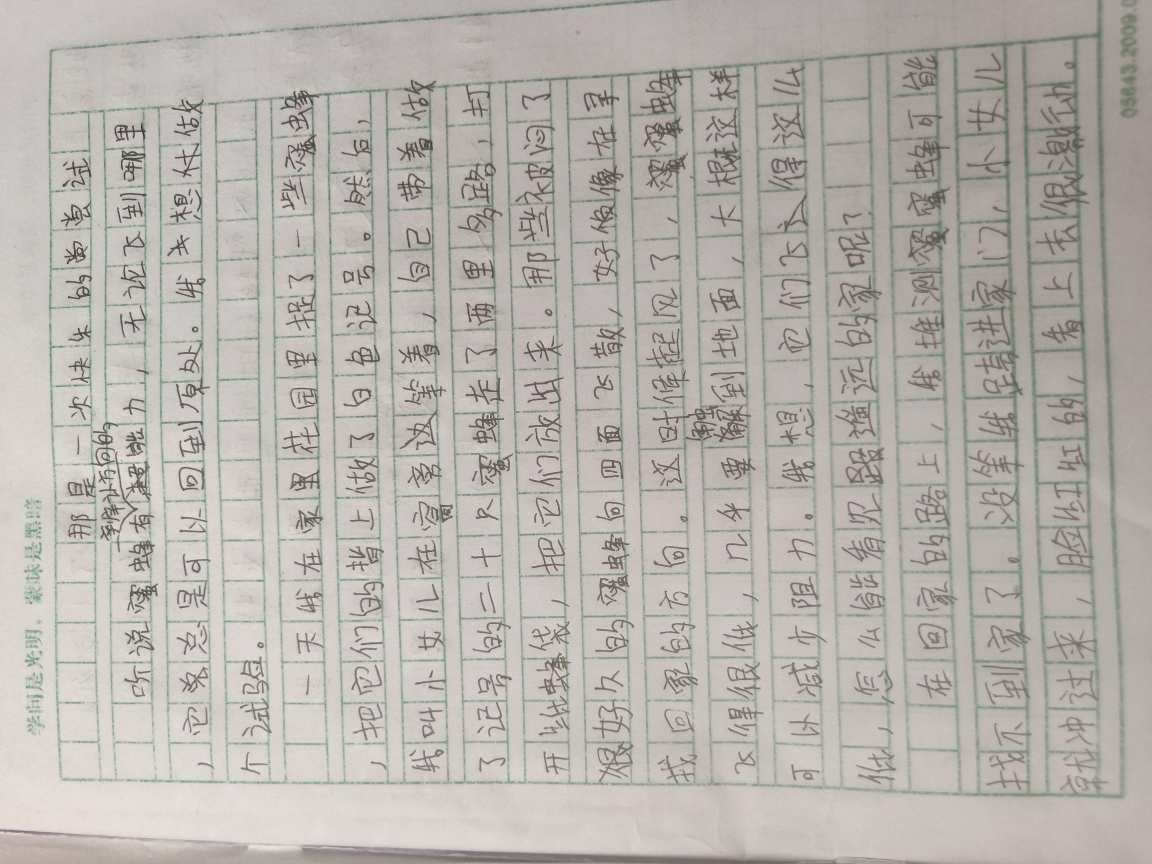 学问是光明，蒙昧是黑暗
那是一次快乐的尝试
听说蜜蜂有辨别方向的能力，无论飞到哪里
，它总是可以回到原处。我也想来做
个试验。
一天我在家里花园里捉了一些蜜蜂
，把它们的背上做了白色记号。然后，
我叫小女儿在窝旁边等着，自己带着做
了记号的二十只蜜蜂走了两里多路，打
开纸袋，把它们放出来。那些被闷了
很好久的蜜蜂向四面飞散，好像在寻
找回家的方向。这时候起风了，蜜蜂
飞得很低，几乎要触到地面，大概这样
可以减少阻力。我想，它们飞得这么
低，怎么能看见遥远的家呢？
在回家的路上，我推测蜜蜂可能
找不到家了。没等我跨进家门，小女儿
就冲过来，脸红红的，看上去很激动。
05643.2009.0